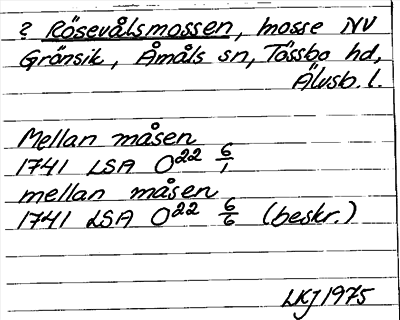 ? Rösevålsmossen, mosse NV
Gränsik, Åmåls sn, Tössbo hd,
Älvsb. l.
Mellan måsen
1741 LSA O22 6/1
mellan måsen
1741 LSA O22 6/6 (beskr.)
LKJ 1975